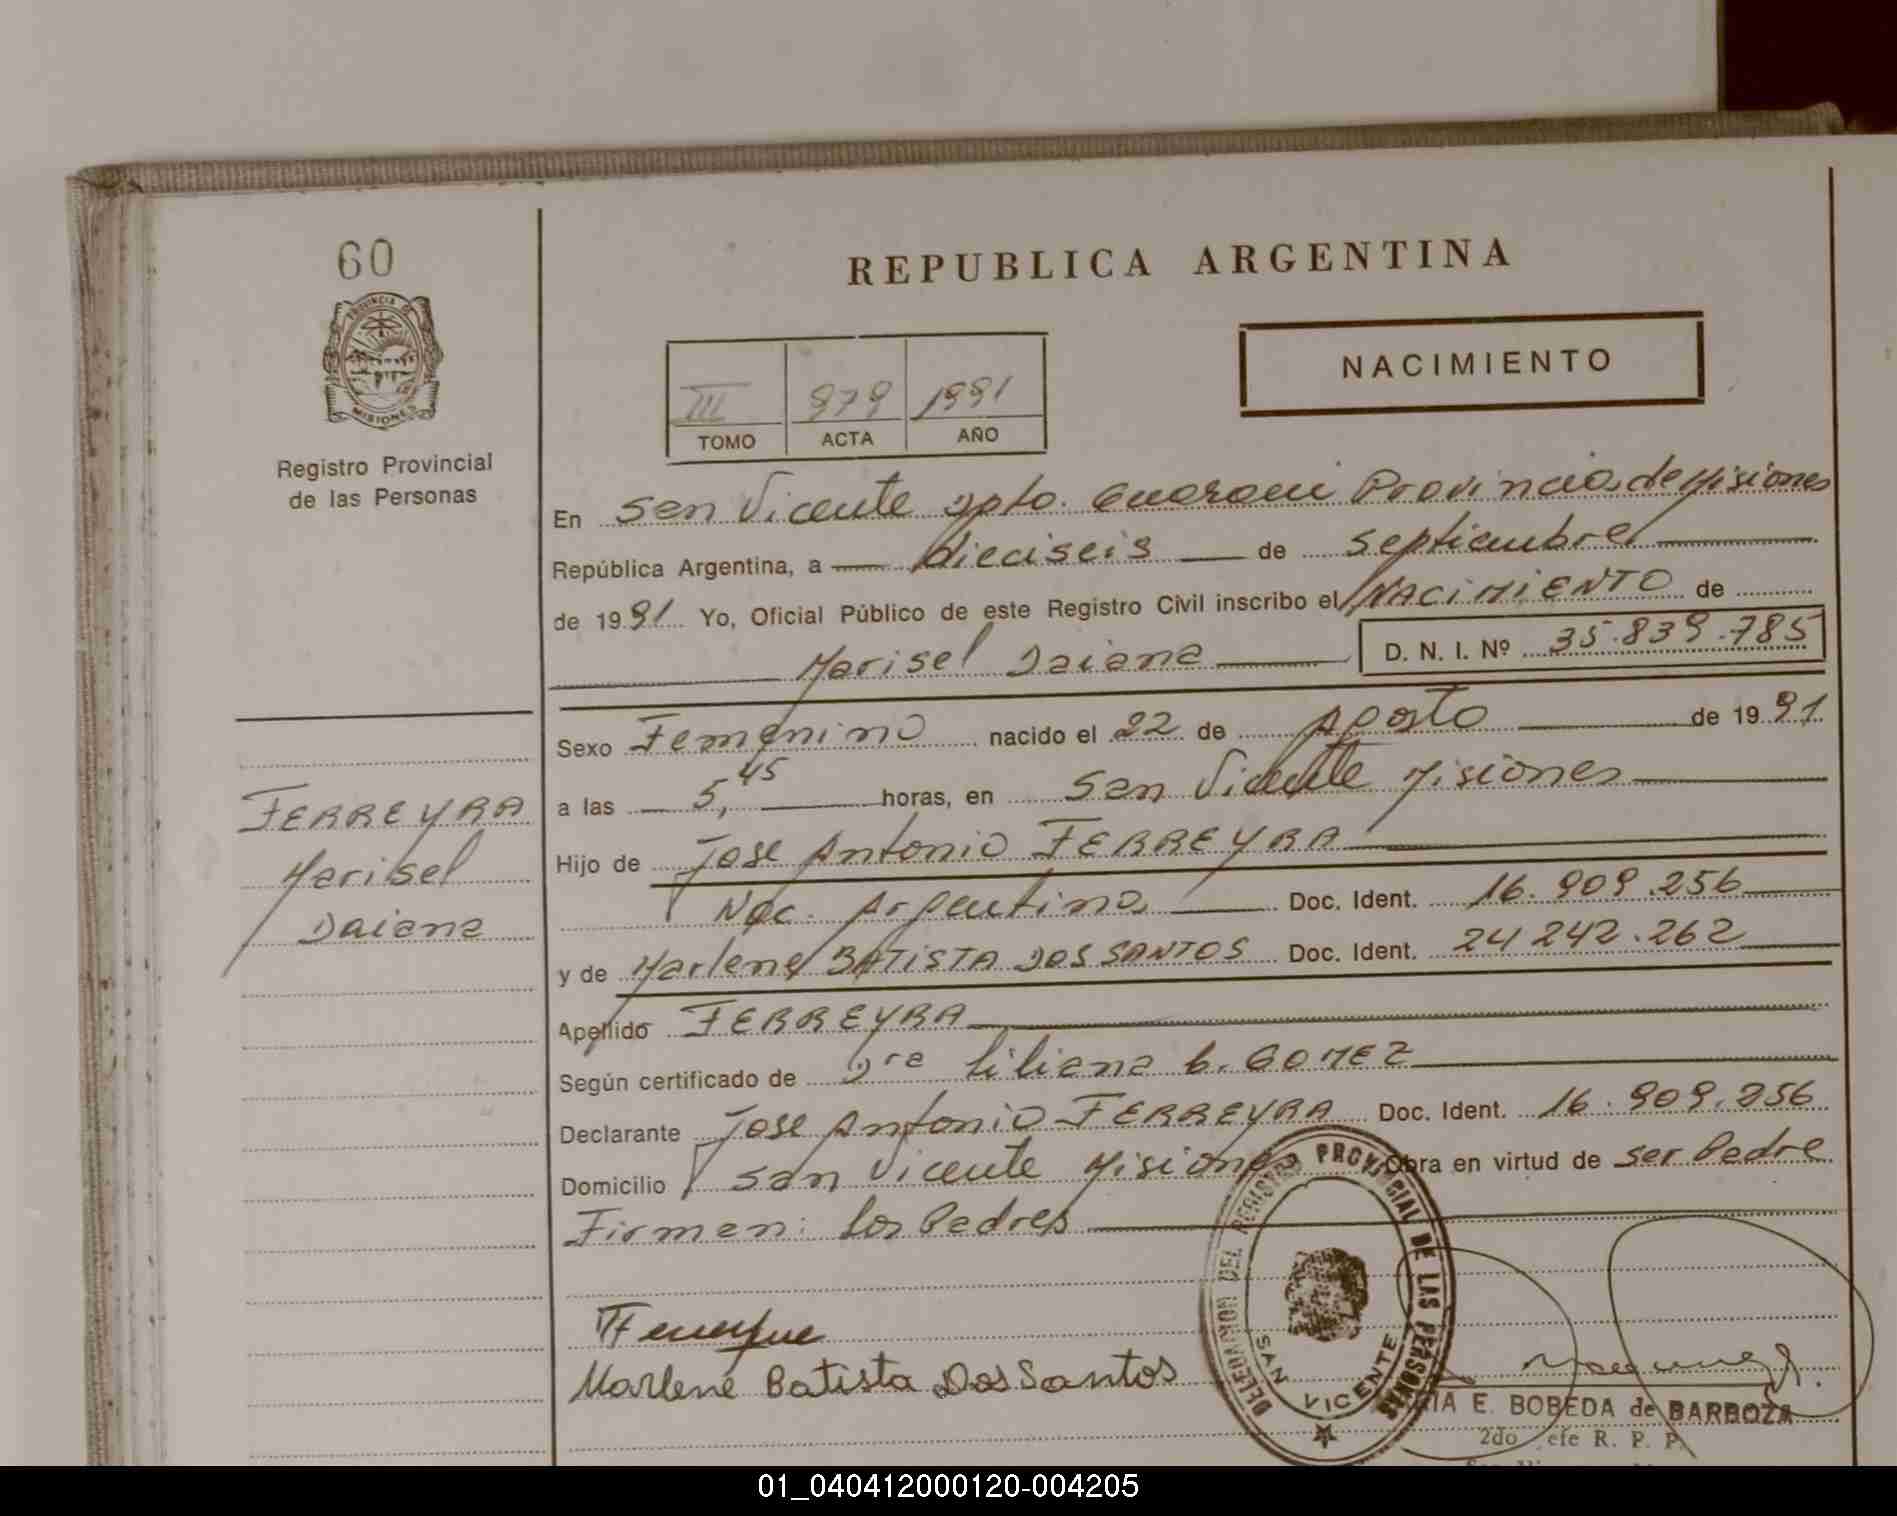 60
REPUBLICA ARGENTINA
PROVINCIA DE
MISIONES
NACIMIENTO
III 979 1991
TOMO ACTA AÑO
Registro Provincial
de las Personas
En San Vicente Dpto. Guarani Provincia de Misiones
República Argentina, a dieciseis de septiembre
de 1991 Yo, Oficial Público de este Registro Civil inscribo el NACIMIENTO de
Marisel Daiana D. N. I. Nº 35.839.785
Sexo Femenino nacido el 22 de Agosto de 1991
a las 5,45 horas, en San Vicente Misiones
FERREYRA
Marisel
Daiana
Hijo de Jose Antonio FERREYRA
Nac. Argentina Doc. Ident. 16.909.256
y de Marlene BATISTA DOS SANTOS Doc. Ident. 24 242.262
Apellido FERREYRA
Según certificado de Dra Liliana b. GOMEZ
Declarante Jose Antonio FERREYRA Doc. Ident. 16.909.256
Domicilio San Vicente Misiones Obra en virtud de ser Padre
Firman: los Padres
DELEGACION DEL REGISTRO PROVINCIAL DE LAS PERSONAS
SAN VICENTE
Marlene Batista Dos Santos
E. BOBEDA de BARBOZA
2do efe R. P. P.
01_040412000120-004205